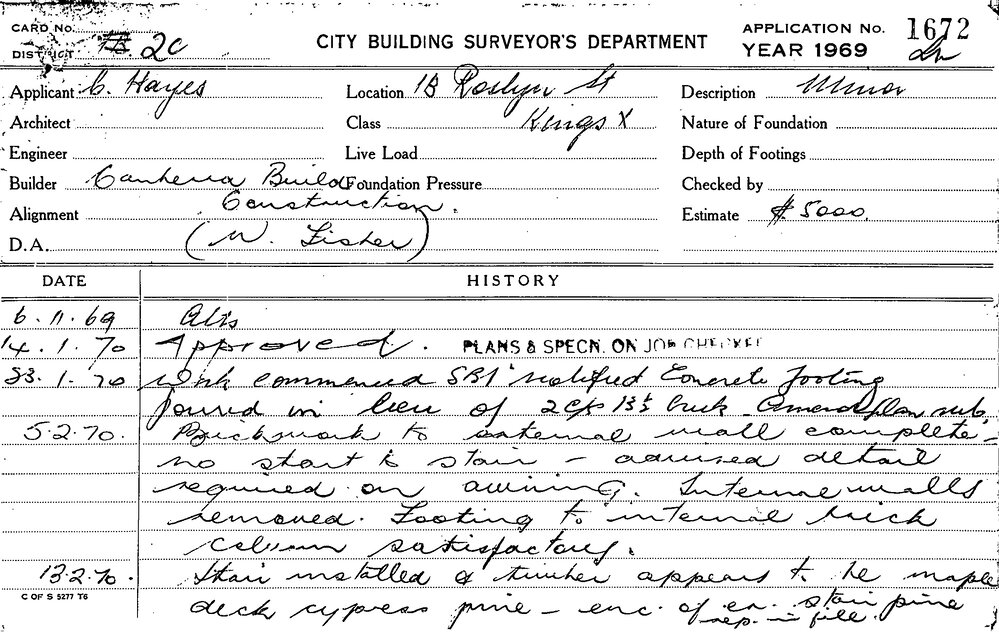 CARD No.
DISTRICT 2C
CITY BUILDING SURVEYOR'S DEPARTMENT
APPLICATION No. 1672
YEAR 1969
Applicant C. Hayes
Location 1B Roslyn St
Description Minor
Architect
Class Kings X
Nature of Foundation
Engineer
Live Load
Depth of Footings
Builder Canberra Build
Foundation Pressure
Checked by
Construction.
Alignment
Estimate $5000.
D.A. (W. Fisher)
DATE HISTORY
6.11.69 Alts
14.1.70 Approved. PLANS & SPECN. ON JOB CHECKED
23.1.70 Work commenced SBI notified Concrete footing
poured in lieu of 2 brick - Amend plan sub.
5.2.70. Brickwork to external wall complete -
no start to stair - advised detail
required on awning. Internal walls
removed. Footing to internal brick
column satisfactory.
13.2.70. Stair installed & timber appears to be maple
deck cypress pine - enc. of ex. stair pine
C OF S 5277 T6
rep. in fill.